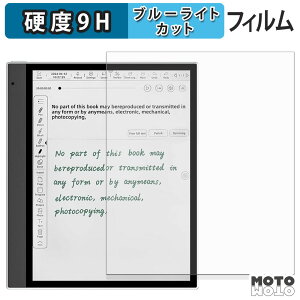 硬度9H
ブルーライト
カット
フィルム
No part of this book may bereproduced or transmitted in
any form or by anymeans, electronic, mechanical,
photocopying,
No part of this book may
bereproduced or transmitted in
any form or by anymeans,
electronic, mechanical,
photocopying.
MOTO
MOTO